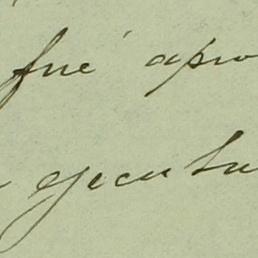 fué apro
ejecuta